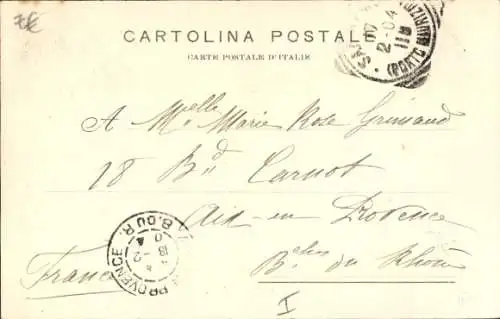 CARTOLINA POSTALE
CARTE POSTALE D'ITALIE
(PORTO MAURIZIO)
2-04
A Melle Marie Rose Grimaud
18 Bd Carnot
Aix-en Provence
Bches du Rhône
France
PROVENCE B. DU R.
I